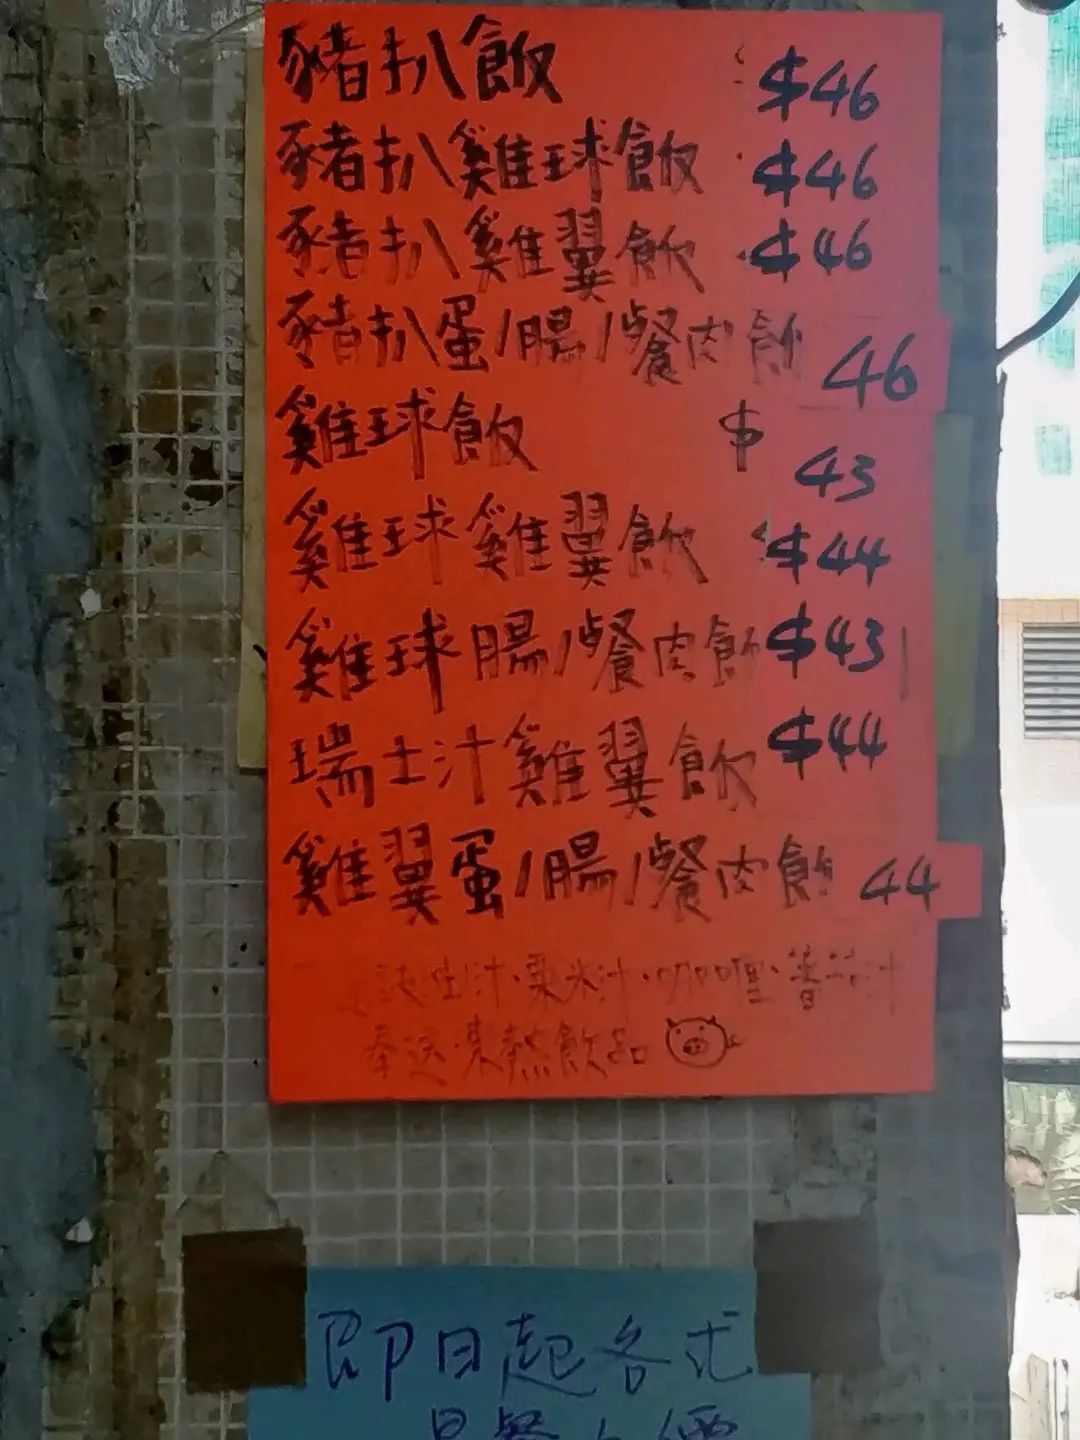 豬扒飯 $46
豬扒雞球飯 $46
豬扒雞翼飯 $46
豬扒蛋/腸/餐肉飯 46
雞球飯 $43
雞球雞翼飯 $44
雞球腸/餐肉飯 $43
瑞士汁雞翼飯 $44
雞翼蛋/腸/餐肉飯 44
汁·粟米汁·咖喱·汁
奉送凍熱飲品
即日起各式